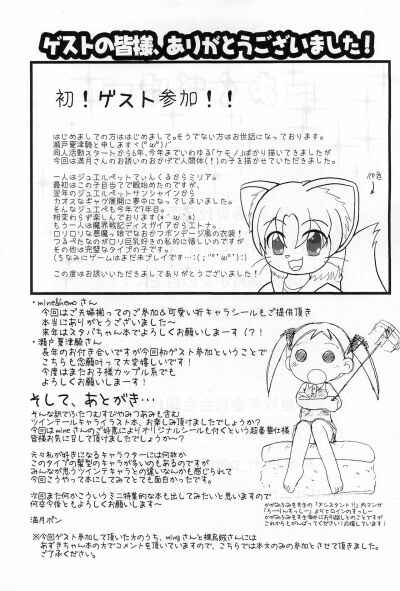 ゲストの皆様、ありがとうございました!
初!ゲスト参加!!
はじめましての方ははじめまして。そうでない方はお世話になっております。
瀬戸夏津騎と申しますヾ(°ω°)ノ
同人活動スタートから6年、今年までいわゆる「ケモノ」ばかり描いてきましたが
今回は満月さんのお誘いのおかげで人間体(!)の子を描かせていただきました。
一人はジュエルペットてぃんくるからミリア。
最初はこの子目当てで観始めたのですが、
翌年のジュエルペットサンシャインから
カオスなギャグ展開に夢中になってしまいました。
そんなジュエルペットも今年で7年目。
相変わらず楽しんでおります(*´ω`*)
もう一人は魔界戦記ディスガイアからエトナ。
ロリロリな悪魔っ娘でなおかつボンデージ風の衣装!
つるぺたなのがロリ巨乳好きの私的に惜しいのですが
その他は完璧なタイプの子です。
(ちなみにゲームはまだ未プレイです…
この度はお誘いいただきましてありがとうございました!
・wine&nemoさん
今回はご夫婦揃ってのご参加&可愛い折キャラシールもご提供頂き
本当にありがとうございました~
来年はスタバちゃん本でよろしくお願いしまーす(?!
・瀬戸夏津騎さん
長年のお付き合いですが今回初ゲスト参加ということで
こちらも念願叶って大変嬉しいです!
今度はまたお子様カップル系でも
よろしくお願いしまーす!
そして、あとがき…
そんな訳でふたつむすびやみつあみも含む
ツインテールキャライラスト本、お楽しみ頂けましたでしょうか?
今回はwineさんのご好意によりオリジナルシールも付くという超豪華仕様
皆様お気に召して頂けましたでしょうか~?
元々私が好きになるキャラクターには何故か
このタイプの髪型のキャラが多いのもあるのですが
みんなが思うツインテキャラとの違いなんかも感じられて
今回こうやって本にしてみてとても面白かったです。
次回また何かこういうミニ特集的な本も出してみたいと思いますので
何卒今後ともよろしくお願いしまーす~
満月ポン
かがみふみを先生の「アシスタント!!」内マンガ
※今回ゲスト参加して頂いた方のうち、wineさんと
あずきちゃん本の方でコメントを頂いていますので、こちらでは本文のみの参加とさせて頂きました。
ご了承ください。